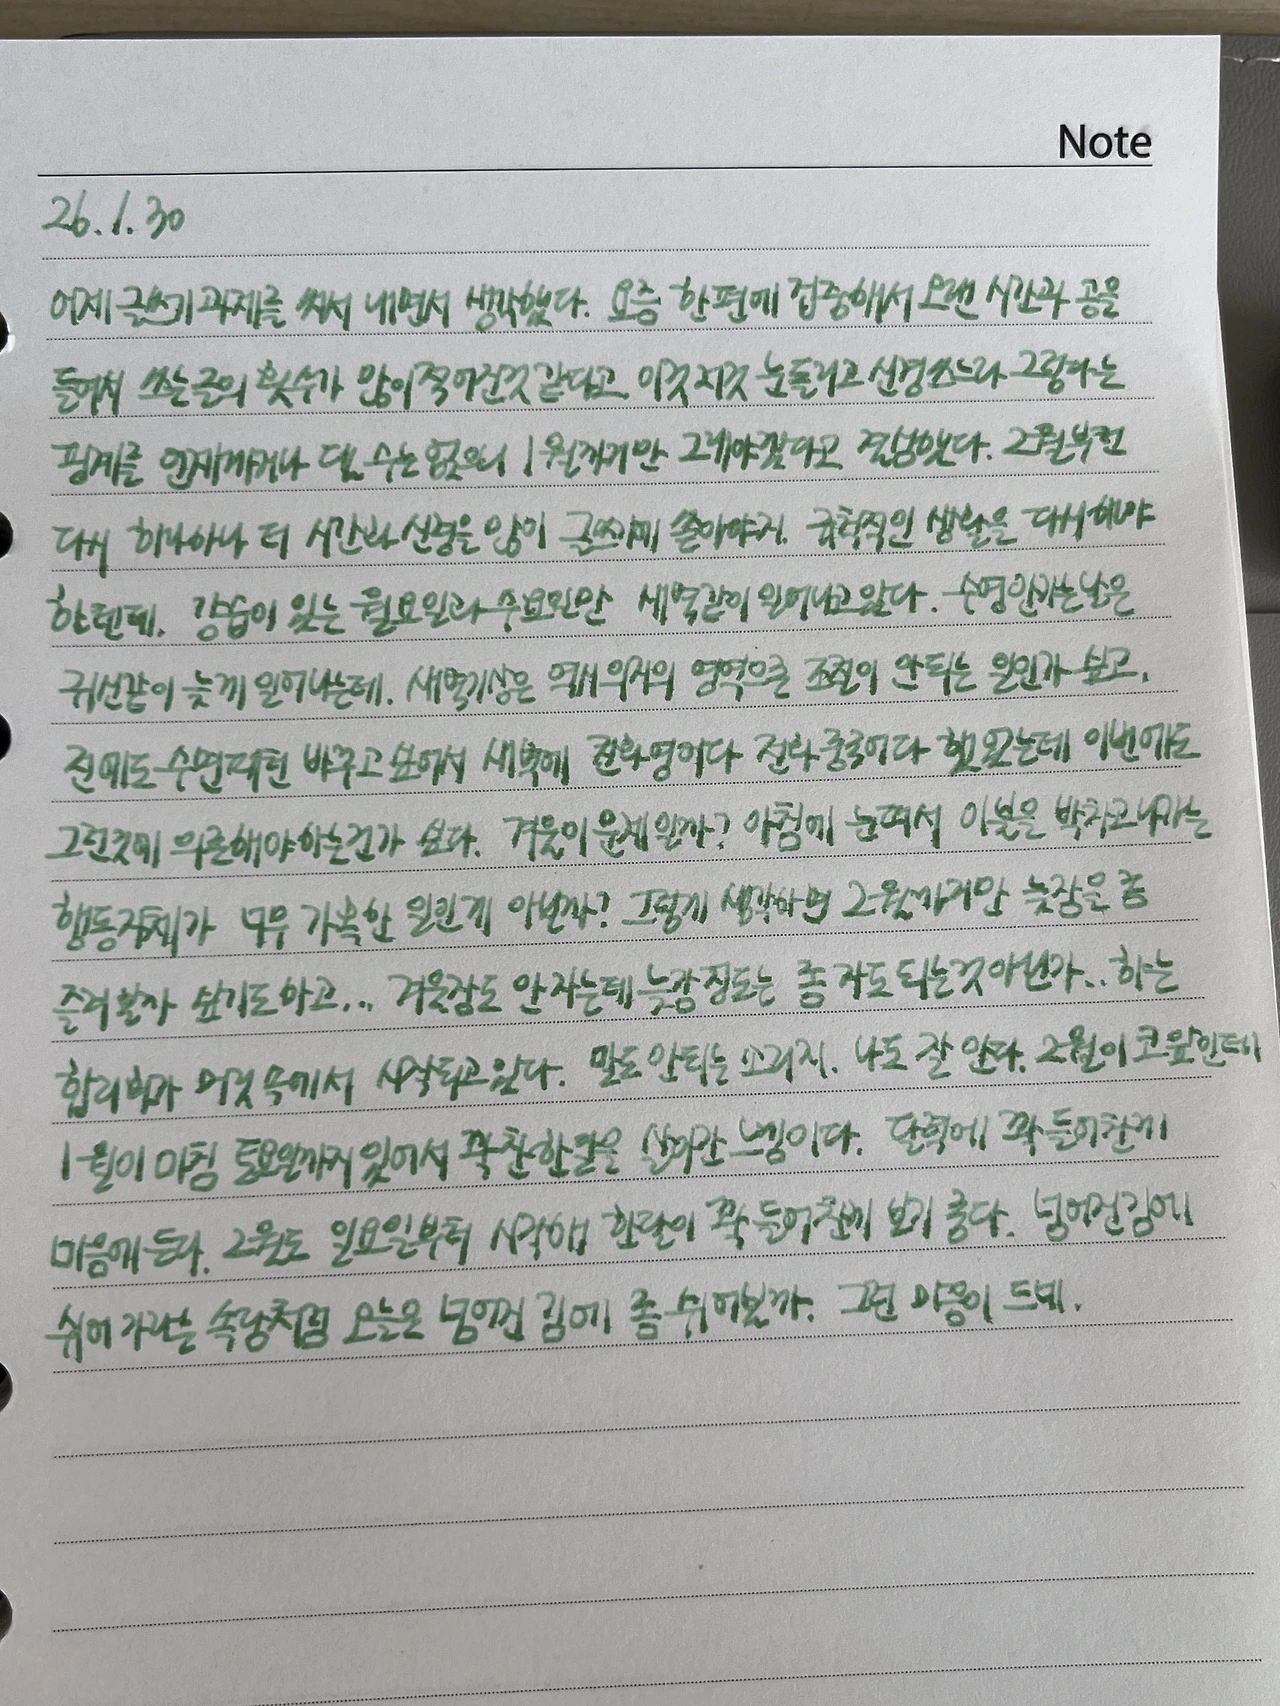 Note
26.1.30
어제 글쓰기 과제를 써서 내면서 생각했다. 요즘 한편에 집중해서 오랜 시간과 공을
들여서 쓰는 글의 횟수가 많이 적어진것 같다고. 이것저것 눈돌리고 신경쓰느라 그랬다는
핑계를 언제까지나 댈 수는 없으니 1월까지만 그래야겠다고 결심했다. 2월부턴
다시 하나하나 더 시간과 신경을 많이 글쓰기에 쏟아야지. 규칙적인 생활을 다시해야
할텐데. 강습이 있는 월요일과 수요일만 새벽같이 일어나고있다. 수영안가는날은
귀신같이 늦게 일어나는데. 새벽기상은 역시 의지의 영역으론 조절이 안되는 일인가 싶고,
전에도 수면패턴 바꾸고 싶어서 새벽에 전화영어다 전화중국어다 했었는데 이번에도
그런것에 의존해야하는건가 싶다. 겨울이 문제일까? 아침에 눈떠서 이불을 박차고나가는
행동자체가 너무 가혹한 일인게 아닐까? 그렇게 생각하면 2월까지만 늦잠을 좀
즐겨볼까 싶기도하고... 겨울잠도 안자는데 늦잠정도는 좀 자도 되는것아닌가.. 하는
합리화가 머릿속에서 시작되고있다. 말도안되는 소리지. 나도 잘 안다. 2월이 코앞인데
1월이 마침 토요일까지 있어서 꽉찬한달을 살아간 느낌이다. 달력에 꽉들어찬게
마음에 든다. 2월도 일요일부터 시작해 한달이 꽉 들어찬게 보기 좋다. 넘어진김에
쉬어가라는 속담처럼 오늘은 넘어진 김에 좀 쉬어볼까. 그런 마음이 드네.